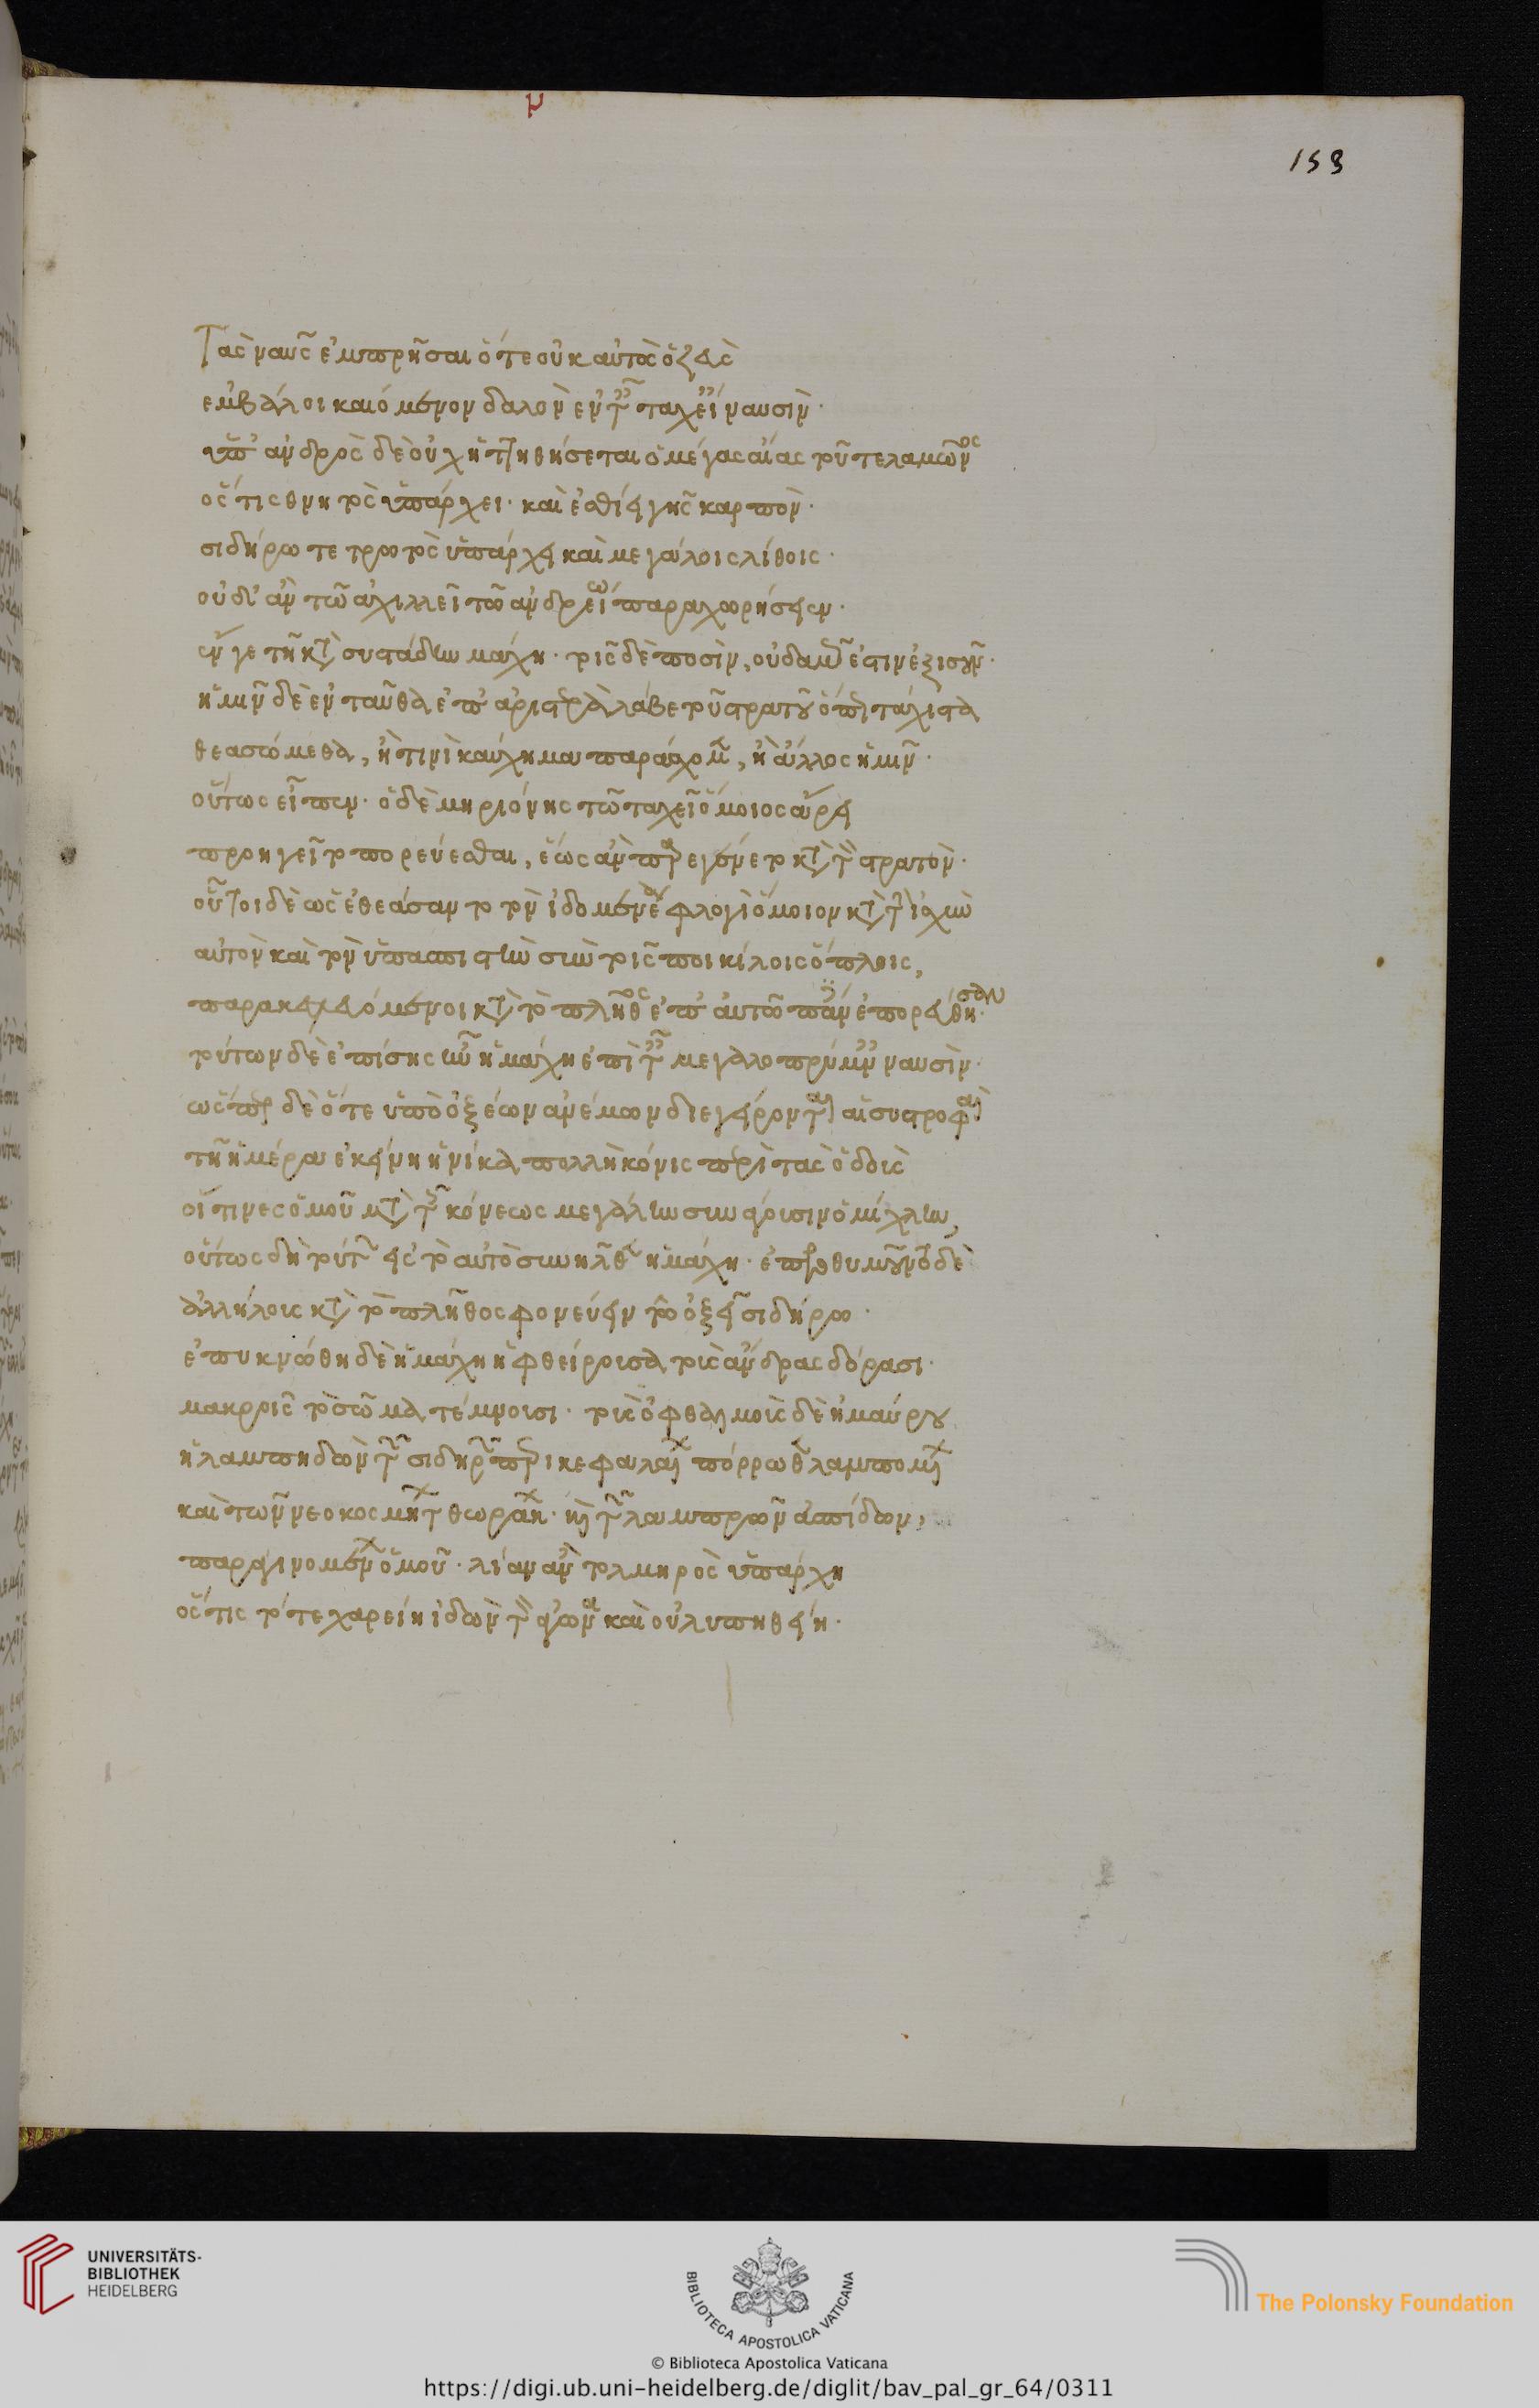 μ
153
Τὰς ναῦς ἐμπρῆσαι ὅτε οὐκ αὐτὸς ὁ ζεὺς
ἐμβάλοι καιόμενον δαλὸν ἐν τῆς ταχείαις ναυσίν·
ὑπ' ἀνδρὸς δὲ οὐχ ἡττηθήσεται ὁ μέγας αἴας τοῦ τελαμῶνος
ὅς τις θνητὸς ὑπάρχει· καὶ ἐσθίει γῆς καρπόν·
σιδήρω τε τρωτὸς ὑπάρχει καὶ μεγάλοις λίθοις·
οὐδ' ἂν τῶ ἀχιλλεῖ τῶ ἀνδρείω παραχωρήσειεν·
ἔν γε τῆ κατὰ συστάδην μάχη· τοῖς δὲ ποσὶν, οὐδαμῶς ἔστιν ἐξισοῦν·
ἡμῖν δὲ ἐνταῦθα ἐπ' ἀριστερὰ λάβε τοῦ στρατοῦ ὅπως τάχιστα
θεασώμεθα, ἤ τινὶ καύχημα παράσχομεν, ἢ ἄλλος ἡμῖν·
οὕτως εἶπεν· ὁ δὲ μηριόνης τῶ ταχεῖ ὅμοιος ἄρει
προηγεῖτο πορεύεσθαι, ἕως ἂν παρεγένετο κατὰ τὸν στρατόν·
οὗτοι δὲ ὡς ἐθεάσαντο τὸν ἰδομενέα φλογὶ ὅμοιον κατὰ τὴν ἰσχὺν
αὐτὸν καὶ τὸν ὑπασπιστὴν σὺν τοῖς ποικίλοις ὅπλοις,
παρακελευόμενοι κατὰ τὸ πλῆθος ἐπ' αὐτῶ πάντες ἐπορεύθησαν·
τούτων δὲ ἐπίσης ἦν ἡ μάχη ἐπὶ ταῖς μεγαλοπρύμνοις ναυσίν·
ὥσπερ δὲ ὅτε ὑπὸ ὀξέων ἀνέμων διεγείρονται αἱ συστροφαὶ
τῆ ἡμέρα ἐκείνη ἡνίκα πολλὴ κόνις περὶ τὰς ὁδοὺς
οἵτινες ὁμοῦ μετὰ τῆς κόνεως μεγάλην συνάγουσιν ὁμίχλην,
οὕτως δὴ τούτων εἰς τὸ αὐτὸ συνῆλθεν ἡ μάχη· ἐπροθυμοῦντο δὲ
ἀλλήλοις κατὰ τὸ πλῆθος φονεύειν τῶ ὀξεῖ σιδήρω·
ἐπυκνώθη δὲ ἡ μάχη ἡ φθείρουσα τοὺς ἄνδρας δόρασι·
μακροῖς τὸ σῶμα τέμνουσι· τοὺς ὀφθαλμοὺς δὲ ἠμαύρου
ἡ λαμπηδὼν τῶν σιδηρῶν περικεφαλαιῶν πόρρωθεν λαμπομένων
καὶ τῶν νεοκοσμήτων θωράκων· καὶ τῶν λαμπρῶν ἀσπίδων,
παραγινομένων ὁμοῦ· λίαν ἂν τολμηρὸς ὑπάρχη
ὅς τις τότε χαρείη ἰδὼν τὸν ἀγῶνα καὶ οὐ λυπηθείη·
UNIVERSITÄTS-
BIBLIOTHEK
HEIDELBERG
BIBLIOTECA APOSTOLICA VATICANA
The Polonsky Foundation
© Biblioteca Apostolica Vaticana
https://digi.ub.uni-heidelberg.de/diglit/bav_pal_gr_64/0311